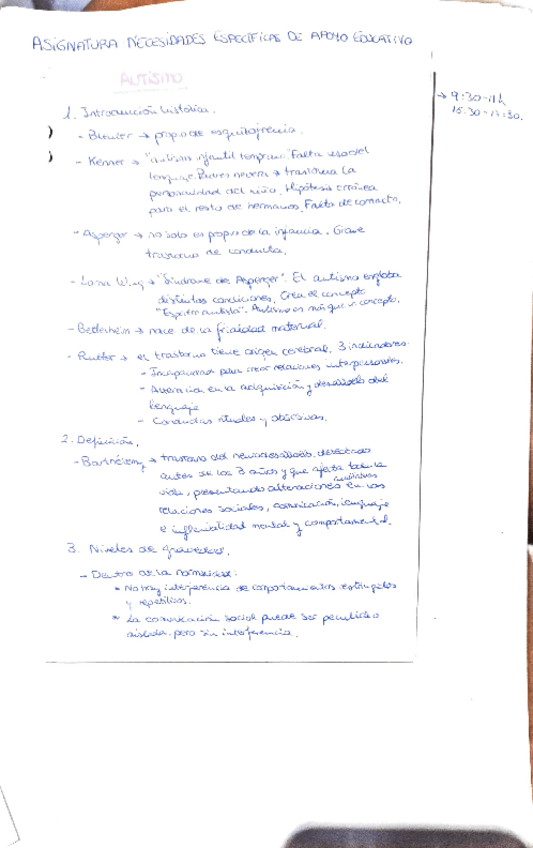 ASIGNATURA NECESIDADES ESPECÍFICAS DE APOYO EDUCATIVO
AUTISMO
→ 9:30-11h
15:30-17:30.
1. Introducción histórica.
- Bleuler → propio de esquizofrenia.
- Kanner → "autismo infantil temprano" Falta uso del
lenguaje. Padres nevera → trastorna la
personalidad del niño. Hipótesis errónea
para el resto de hermanos. Falta de contacto.
- Asperger → no solo es propio de la infancia. Grave
trastorno de conducta.
- Lorna Wing → "Síndrome de Asperger". El autismo engloba
distintas condiciones. Crea el concepto
"Espectro autista". Autismo es más que un concepto.
- Bettelheim → nace de la frialdad maternal.
- Rutter → el trastorno tiene origen cerebral. 3 indicadores:
- Incapacidad para crear relaciones interpersonales.
- Alteración en la adquisición y desarrollo del
lenguaje
- Conductas rituales y obsesivas.
2. Definición.
- → trastorno del neurodesarrollo, detectado
antes de los 3 años y que afecta toda la
cualitativas
vida, presentando alteraciones en las
relaciones sociales, comunicación, lenguaje
e inflexibilidad mental y comportamental.
3. Niveles de gravedad.
- Dentro de la normalidad:
* No hay interferencia de comportamientos estereotipados
y repetitivos.
* La comunicación social puede ser peculiar o
aislada, pero sin interferencia.